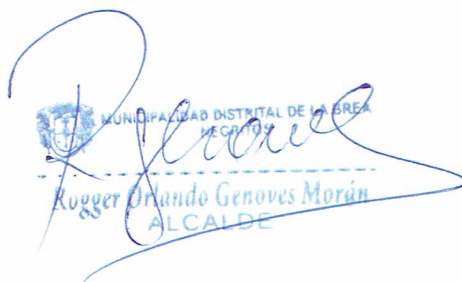 MUNICIPALIDAD DISTRITAL DE LA BREA
NEGRITOS
Rogger Orlando Genoves Morán
ALCALDE